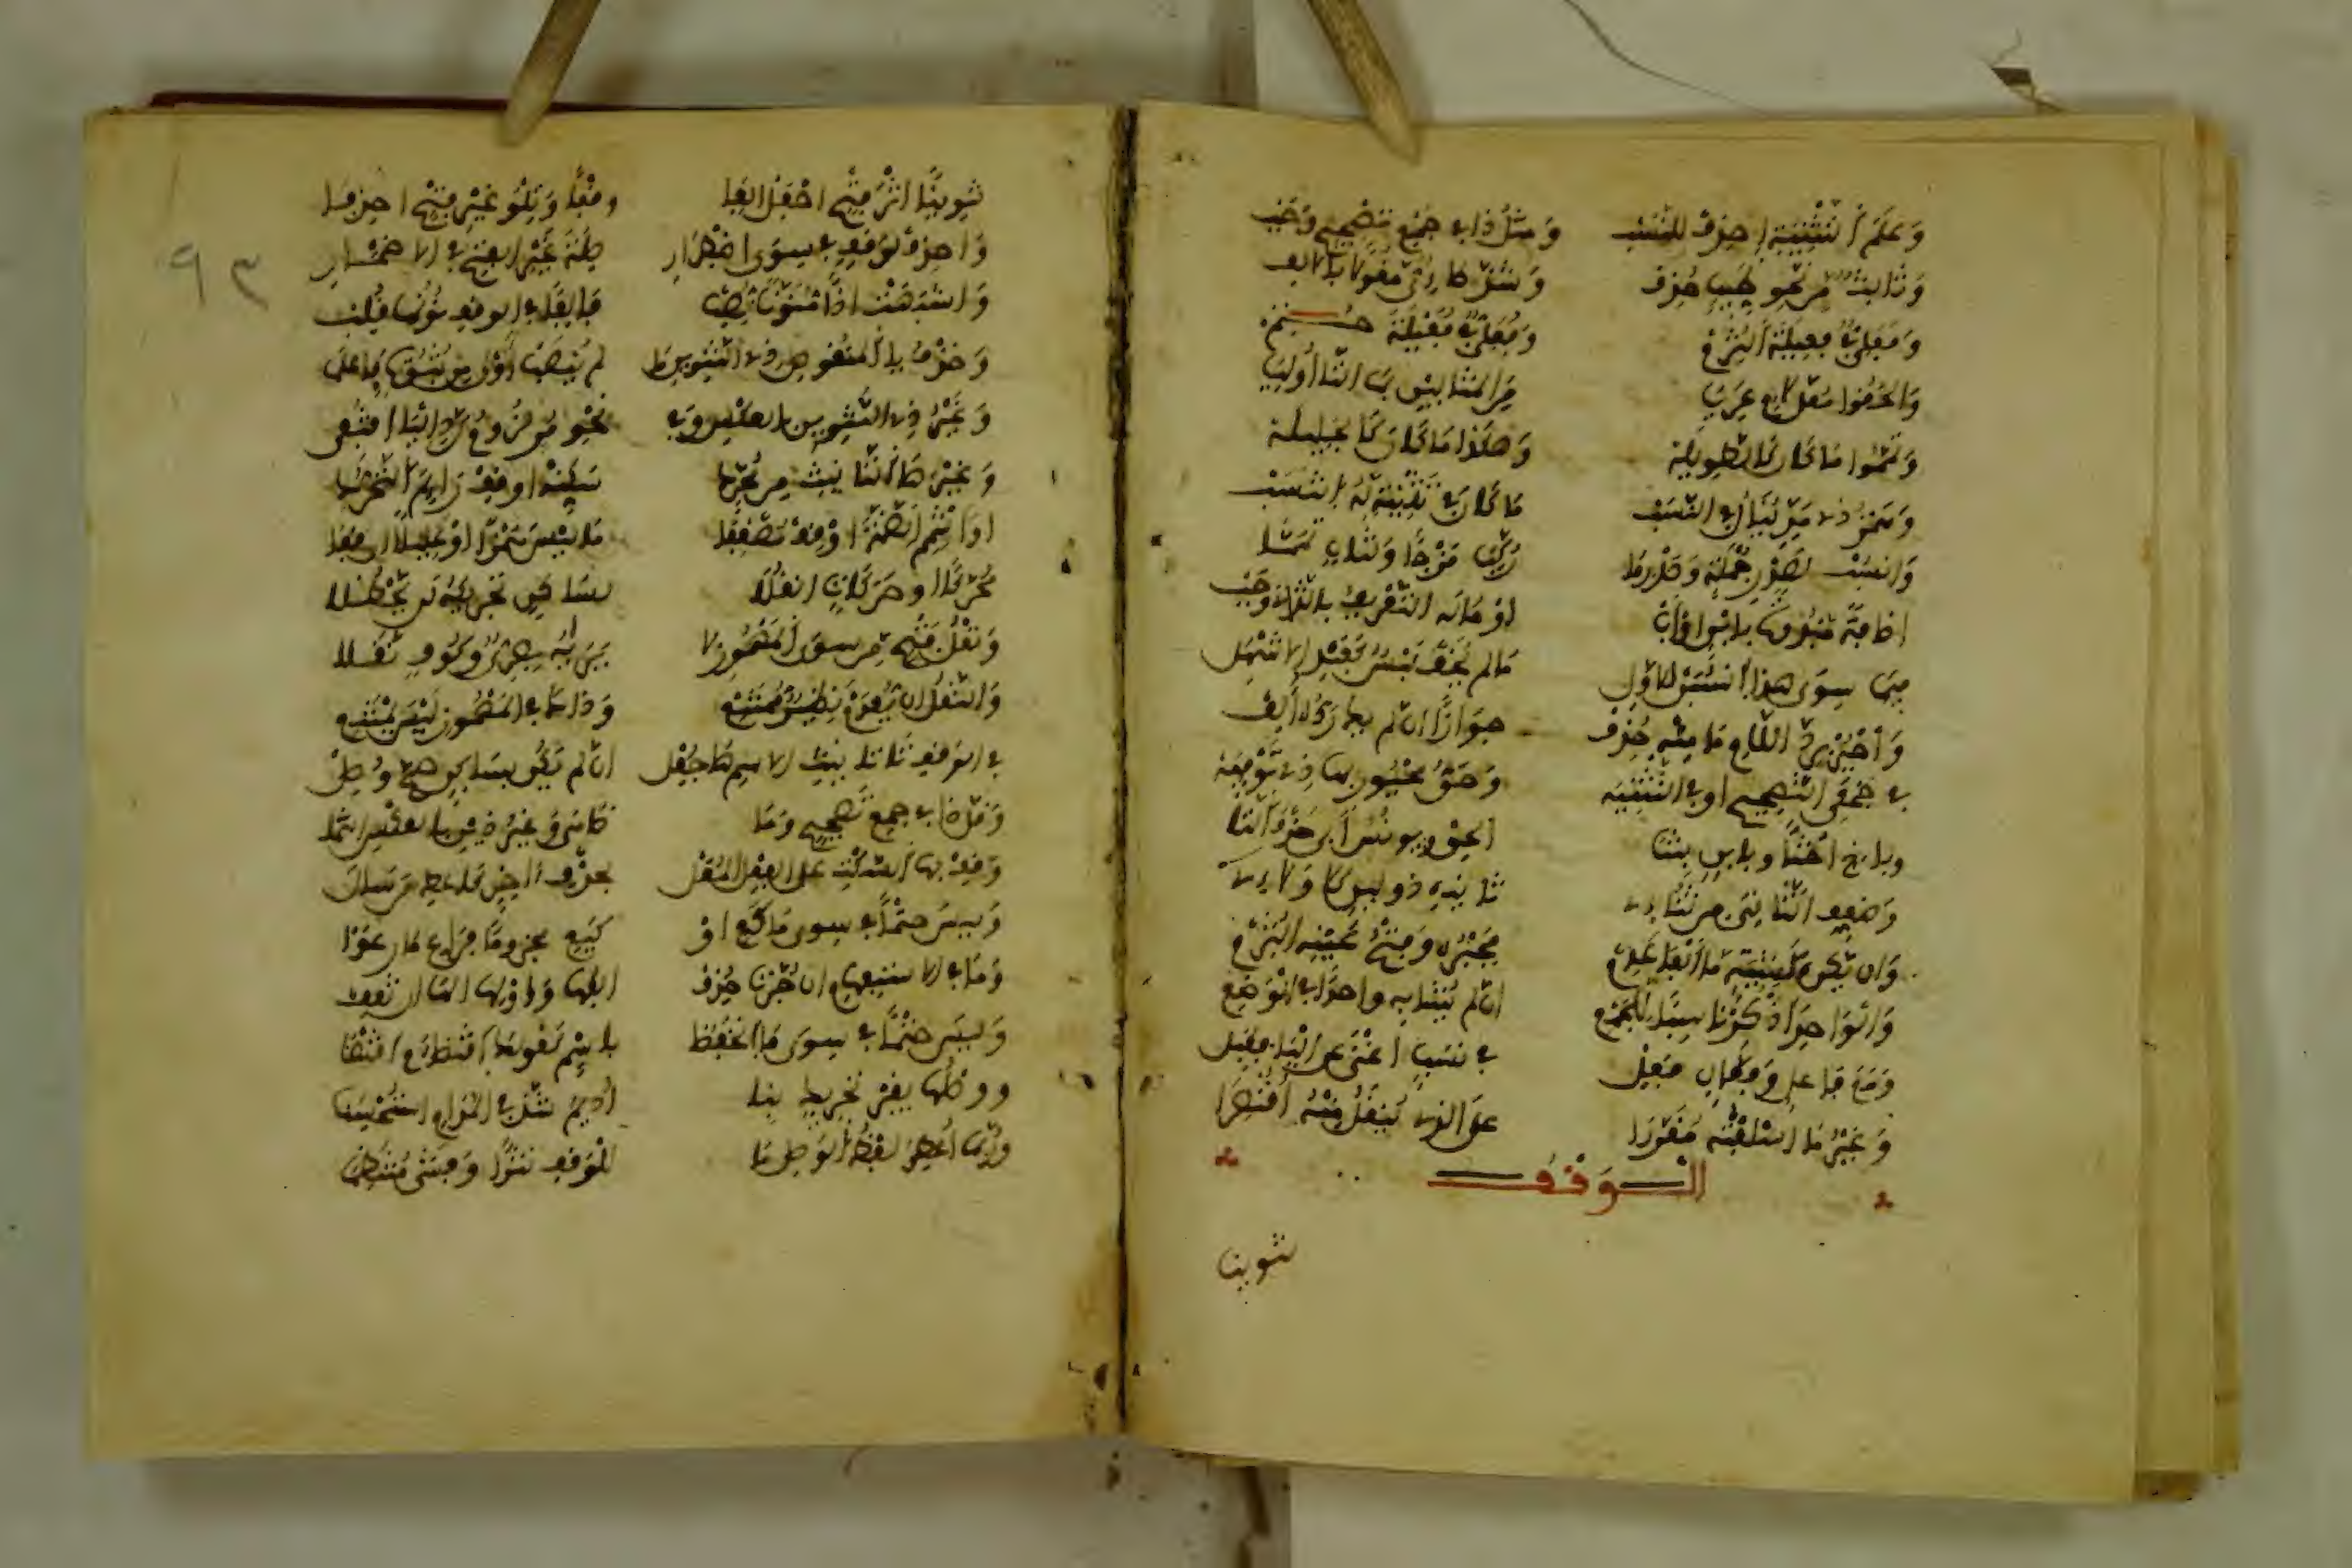 وعلم التثنية احذف للنسب ومثل ذا في جمع تصحيح وجب
وثالث من نحو طيب حذف وشذ طائي مقولا بالالف
وفعلي في فعيلة التزم وفعلي في فعيلة حتم
والحقوا معل لام عريا من المثالين بما التا اوليا
وتمموا ما كان كالطويلة وهكذا ما كان كالجليلة
وهمز ذي مد ينال في النسب ما كان في تثنية له انتسب
وانسب لصدر جملة وصدر ما ركب مزجا ولثان تمما
اضافة مبدوة بابن او اب او ما له التعريف بالثاني وجب
فيما سوى هذا انسبن للاول ما لم يخف لبس كعبد الاشهل
واجبر برد اللام ما منه حذف جوازا ان لم يك رده الف
في جمعي التصحيح او في التثنيه وحق مجبور بهذي توفيه
وباخ اختا وبابن بنتا الحق ويونس ابى حذف التا
وضعف الثاني من ثنائي ثانيه ذو لين كلا ولاءي
وان يكن كشية ما الفا عدم فجبره وفتح عينه التزم
والواحد اذكر ناسبا للجمع ان لم يشابه واحدا بالوضع
ومع فاعل وفعال فعل في نسب اغنى عن اليا فقبل
وغير ما اسلفته مقررا على الذي ينقل منه اقتصرا
الوقف
تنوينا
تنوينا اثر فتح اجعل الفا وقفا وتلو غير فتح احذفا
واحذف لوقف في سوى اضطرار صلة غير الفتح في الاضمار
واشبهت اذا منونا نصب فالفا في الوقف نونها قلب
وحذف يا المنقوص ذي التنوين ما لم ينصب اولى من ثبوت فاعلما
وغير ذي التنوين بالعكس وفي نحو مر لزوم رد اليا اقتفي
وغير ها التانيث من محرك سكنه او قف رايم التحرك
او اشمم الضمة او قف مضعفا ما ليس همزا او عليلا ان قفا
محركا او حركات انقلا لساكن تحريكه لن يحظلا
ونقل فتح من سوى المهموز لا يراه بصري وكوف نقلا
والنقل ان يعدم نظير ممتنع وذاك في المهموز ليس يمتنع
في الوقف تا تانيث الاسم ها جعل ان لم يكن بساكن صح وصل
وقل ذا في جمع تصحيح وما ضاهى وغير ذين بالعكس انتمى
وقف بها السكت على الفعل المعل بحذف اخر كاعط من سال
وليس حتما في سوى ما كع او كيع مجزوما فراع ما رعوا
وما في الاستفهام ان جرت حذف الفها واولها الها ان تقف
وليس حتما في سوى ما انخفض باسم كقولك اقتضاء م اقتضى
ووصلها بغير تحريك بنا اديم شذ في المدام استحسنا
وربما اعطي لفظ الوصل ما للوقف نثرا وفشى منتظما
٩٣